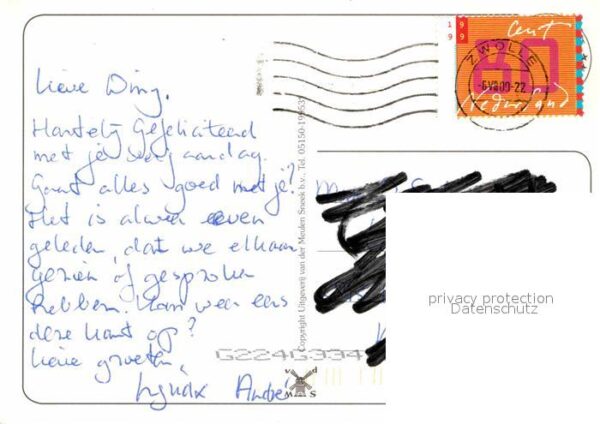 1999
cent
80
Nederland
ZWOLLE
Lieve Diny,
Hartelijk Gefeliciteerd
met je verjaardag.
Gaat alles goed met je?
Het is alweer even
geleden, dat we elkaar
gezien of gesproken
hebben. Kom weer eens
deze kant op?
Lieve groeten,
André
Copyright Uitgeverij van der Meulen Sneek b.v., Tel. 05150-
v d
M S
privacy protection
Datenschutz